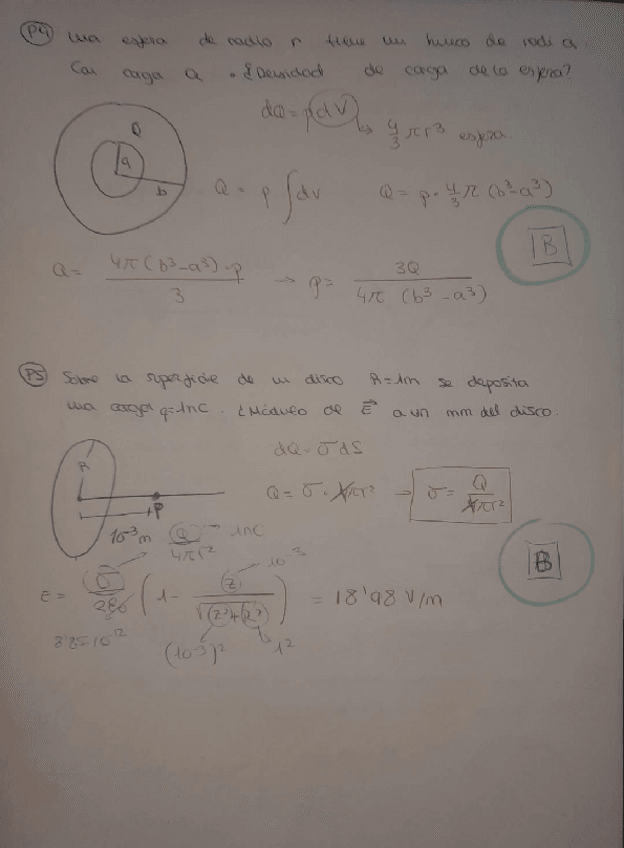 P4 una esfera de radio r tiene un hueco de radi a.
Con carga Q. ¿Densidad de carga de la esfera?
dQ = ρ dV → 4/3 πr³ esfera.
Q
a
b
Q = ρ ∫dv Q = ρ · 4/3 π (b³-a³)
B
Q = 4π(b³-a³)·ρ / 3 → ρ = 3Q / 4π (b³-a³)
P5 Sobre la superficie de un disco R=1m se deposita
una carga q=1nC. ¿Módulo de E⃗ a un mm del disco.
R
dQ = σ dS
P
Q = σ · πr² → σ = Q / πr²
10⁻³ m
Q / 4πr² → 1nC
B
E = σ / 2ε₀ (1 - z / √(z²+R²)) = 18'98 V/m
10⁻³
8'85·10⁻¹²
(10⁻³)² 1²